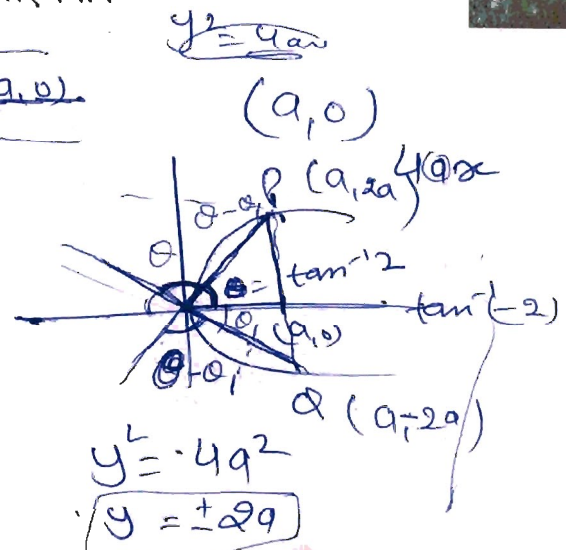 y² = 4ax
a, 0).
(a, 0)
P (a, 2a) 4ax
θ-θ₁
θ
θ = tan⁻¹2
tan⁻¹(-2)
θ₁ (a, 0)
θ-θ₁
Q (a, -2a)
y² = 4a²
y = ±2a